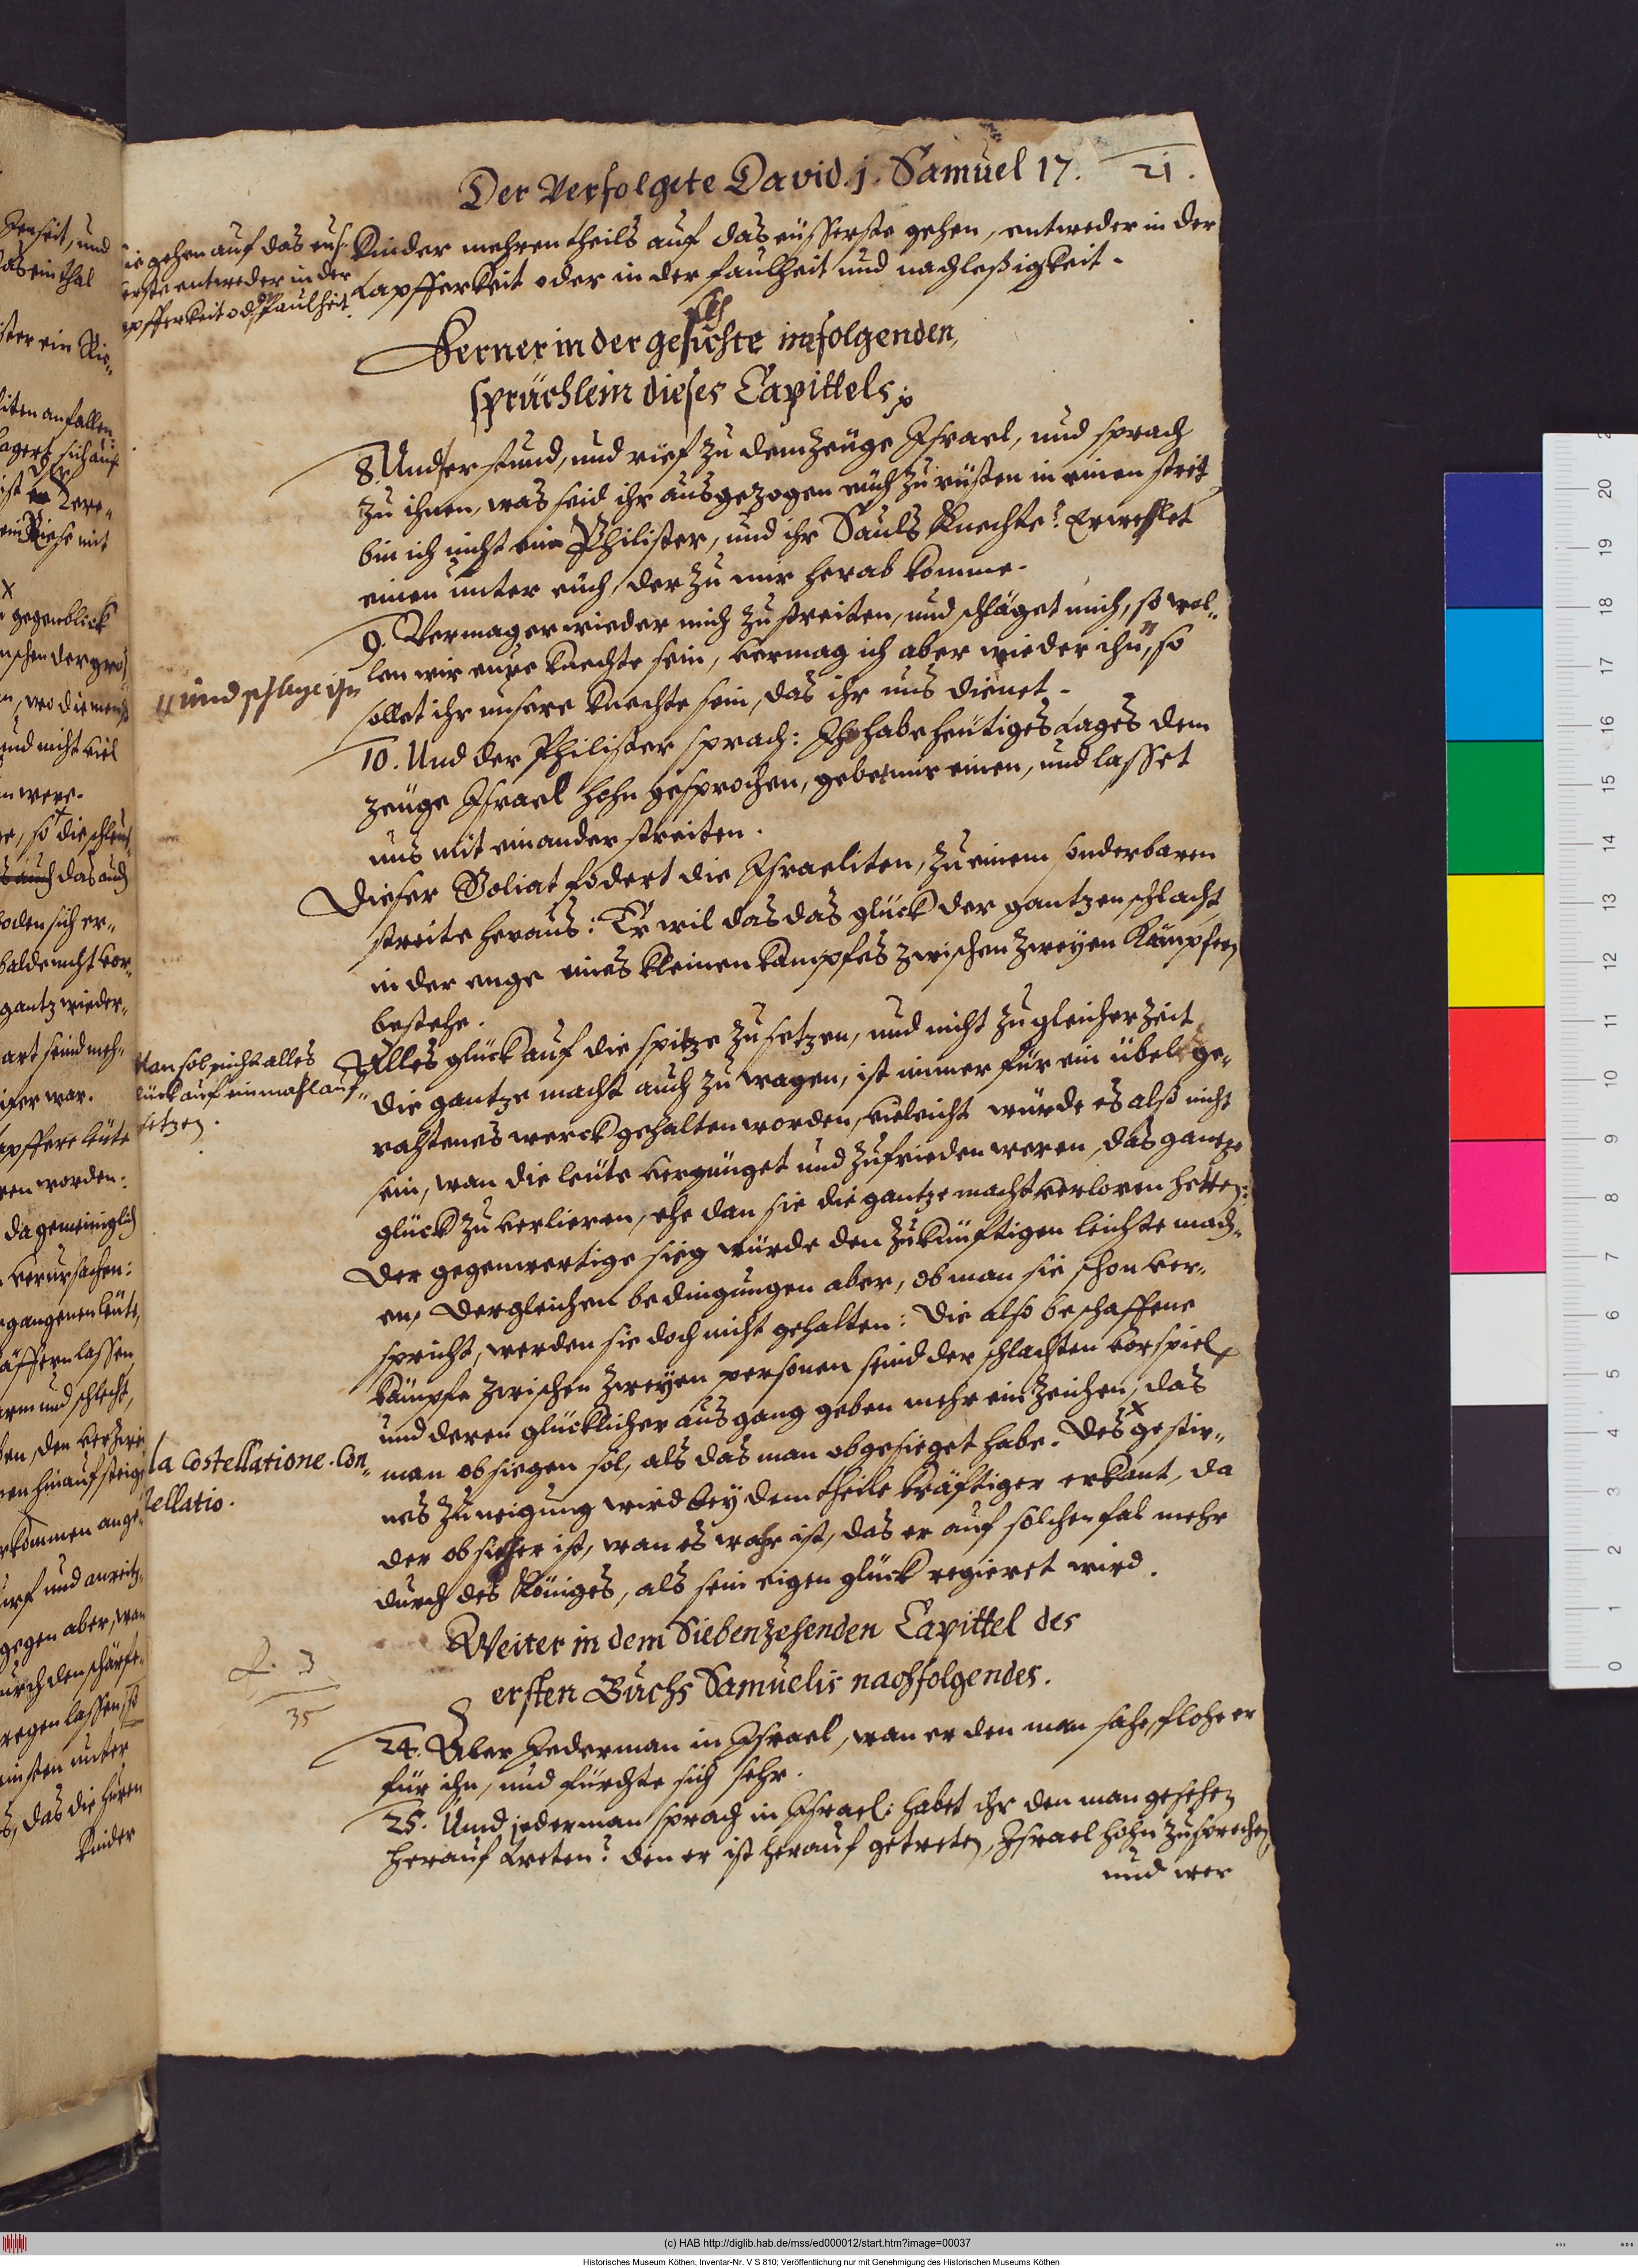 Der Verfolgete David. j. Samuel 17. 21.
Sie gehen auf das euſ-
ſerſte entweder in der
tapfferkeit oder Faulheit.
Kinder mehrentheils auf das eüſſerſte gehen, entweder in der
tapfferkeit oder in der faulheit und nachleßigkeit.
Ferner in der geſchichte in folgenden
ſprüchlein dieſes Capittels:
8. Und er ſtund, und rief zu dem zeüge Iſrael, und ſprach
zu ihnen, was ſeid ihr ausgezogen euch zu rüſten in einen ſtreit
bin ich nicht ein Philiſter, und ihr Sauls Knechte? Erwehlet
einen unter euch, der zu mir herab komme.
9. Vermag er wieder mich zu ſtreiten, und ſchläget mich, ſo wol-
len wir eure knechte ſein, vermag ich aber wieder ihn, ſo
und ſchlage ihn
ſollet ihr unſere knechte ſein, das ihr uns dienet.
10. Und der Philiſter ſprach: Ich habe heütiges tages dem
zeüge Iſrael hohn geſprochen, gebet mir einen, und laſſet
uns mit einander ſtreiten.
Dieſer Goliat fodert die Iſraeliten, zu einem ſonderbaren
ſtreite heraus: Er wil das das glück der gantzen ſchlacht
in der enge eines kleinen kampfes zwiſchen zweyen Kämpfern
beſtehe.
Man ſol nicht alles
glück auf einmahl auf-
ſetzen.
Alles glück auf die ſpitze zu ſetzen, und nicht zu gleicher zeit
die gantze macht auch zu wagen, iſt immer für ein übel ge-
rahtenes werck gehalten worden, vieleicht würde es alſo nicht
ſein, wan die leüte vergnüget und zufrieden weren, das gantze
glück zu verlieren, ehe dan ſie die gantze macht verloren hetten:
Der gegenwertige ſieg würde den zukünftigen leichte mach-
en, Dergleichen bedingungen aber, ob man ſie ſchon ver-
ſpricht, werden ſie doch nicht gehalten: Die alſo beſchaffene
kämpfe zwiſchen zweyen perſonen ſeind der ſchlachten vorſpiel
und deren glücklicher ausgang geben mehr ein zeichen, das
man obſiegen ſol, als das man obgeſieget habe. Des geſtir-
la Costellatione. Con-
ſtellatio.
nes zuneigung wird bey dem theile kräftiger erkant, da
der obſieger iſt, wan es wahr iſt, das er auf ſolchen fal mehr
durch des Königes, als ſein eigen glück regieret wird.
Weiter in dem Siebenzehenden Capittel des
ersten Buchs Samuelis nachfolgendes.
3
35
24. Aber Jederman in Iſrael, wan er den man ſahe, flohe er
für ihn, und fürchte ſich ſehr.
25. Und jederman ſprach in Iſrael: habet ihr den man geſehen
herauf treten? den er iſt herauf getreten, Iſrael hohn zuſprechen
und wer
20
19
18
17
16
15
14
13
12
11
10
9
8
7
6
5
4
3
2
1
0
(c) HAB http://diglib.hab.de/mss/ed000012/start.htm?image=00037
Historisches Museum Köthen, Inventar-Nr. V S 810; Veröffentlichung nur mit Genehmigung des Historischen Museums Köthen